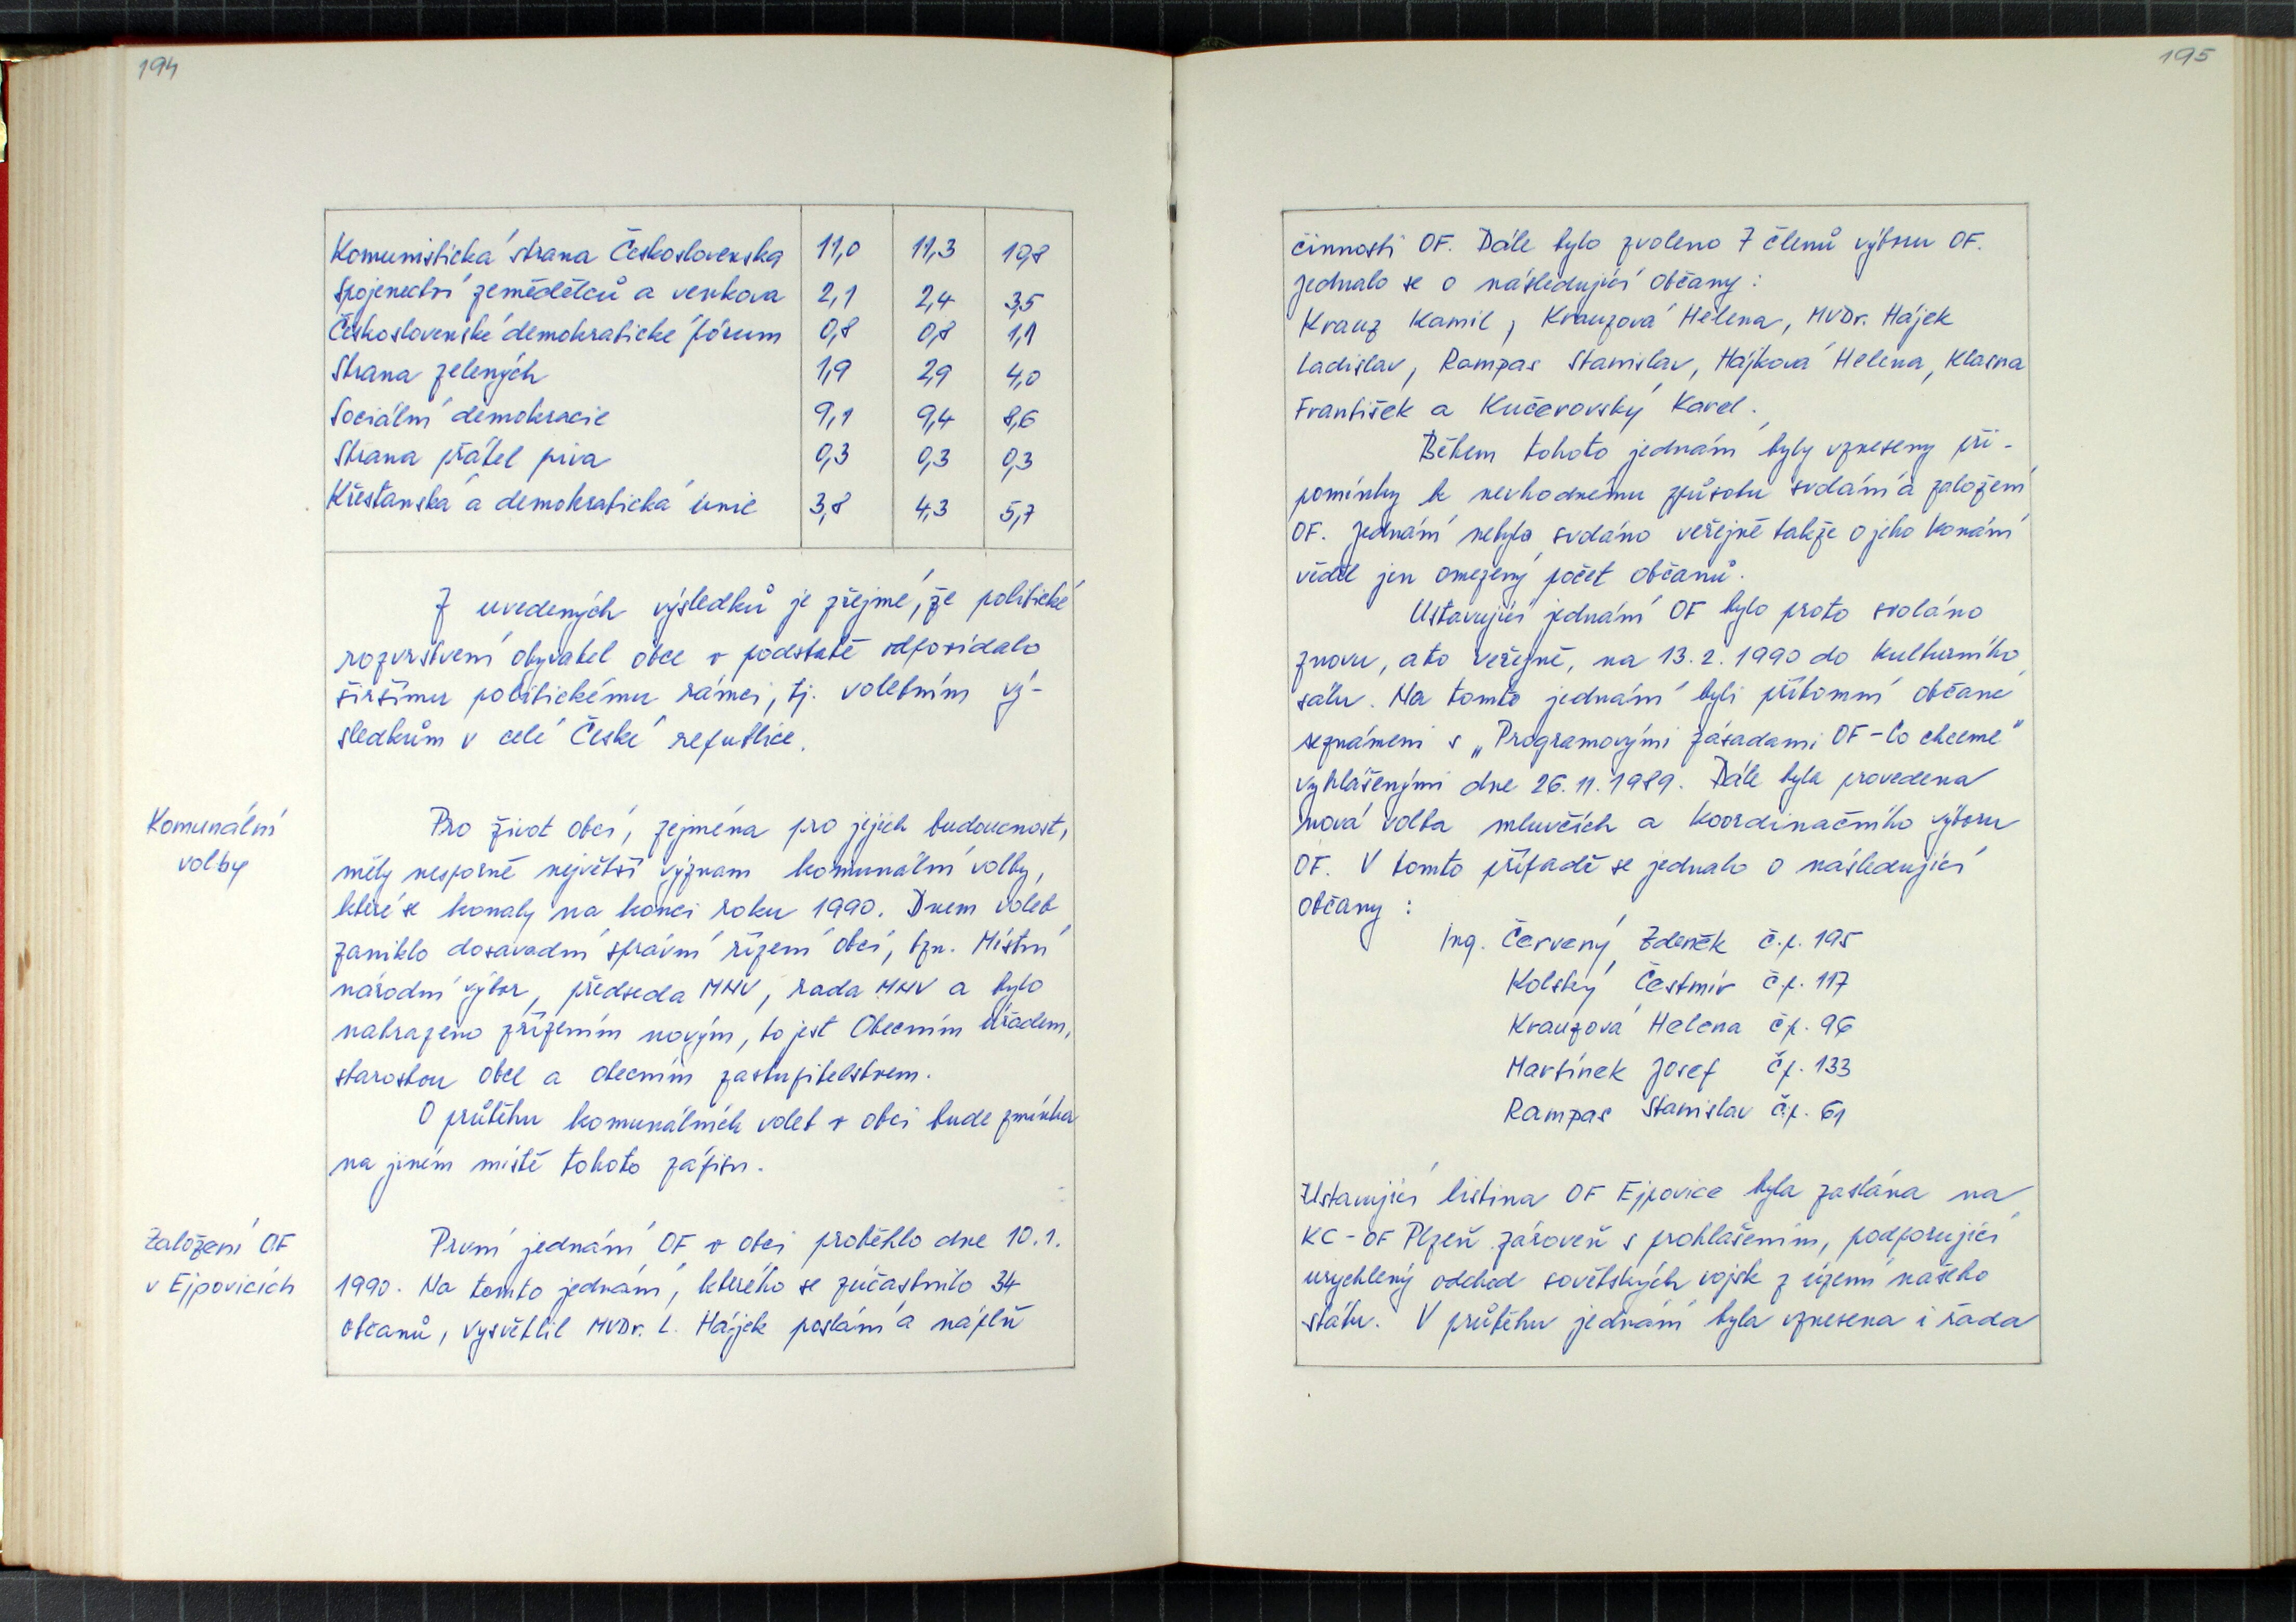 194
Komunistická strana Československa 11,0 11,3 19,8
Spojenectví zemědělců a venkova 2,1 2,4 3,5
Československé demokratické fórum 0,8 0,8 1,1
Strana zelených 1,9 2,9 4,0
Sociální demokracie 9,1 9,4 8,6
Strana přátel piva 0,3 0,3 0,3
Křesťanská a demokratická unie 3,8 4,3 5,7
Z uvedených výsledků je zřejmé, že politické
rozvrstvení obyvatel obce v podstatě odpovídalo
širšímu politickému rámci, tj. volebním vý-
sledkům v celé České republice.
Komunální
volby
Pro život obcí, zejména pro jejich budoucnost,
měly nesporně největší význam komunální volby,
které se konaly na konci roku 1990. Dnem voleb
zaniklo dosavadní správní řízení obcí, tzn. Místní
národní výbor, předseda MNV, rada MNV a bylo
nahrazeno zřízením novým, to jest Obecním úřadem,
starostou obce a obecním zastupitelstvem.
O průběhu komunálních voleb v obci bude zmínka
na jiném místě tohoto zápisu.
Založení OF
v Ejpovicích
První jednání OF v obci proběhlo dne 10.1.
1990. Na tomto jednání, kterého se zúčastnilo 34
občanů, vysvětlil MVDr. L. Hájek poslání a náplň
195
činnosti OF. Dále bylo zvoleno 7 členů výboru OF.
Jednalo se o následující občany:
Krauz Kamil, Krauzová Helena, MVDr. Hájek
Ladislav, Rampas Stanislav, Hájková Helena, Klasna
František a Kučerovský Karel.
Během tohoto jednání byly vzneseny při-
pomínky k nevhodnému způsobu svolání a založení
OF. Jednání nebylo svoláno veřejně takže o jeho konání
věděl jen omezený počet občanů.
Ustavující jednání OF bylo proto svoláno
znovu, a to veřejně, na 13.2.1990 do Kulturního
sálu. Na tomto jednání byli přítomní občané
seznámeni s „Programovými zásadami OF-Co chceme"
vyhlášenými dne 26.11.1989. Dále byla provedena
nová volba mluvčích a koordinačního výboru
OF. V tomto případě se jednalo o následující
občany:
Ing. Červený Zdeněk č.p. 195
Kolský Čestmír č.p. 117
Krauzová Helena čp. 96
Martínek Josef čp. 133
Rampas Stanislav č.p. 61
Ustavující listina OF Ejpovice byla zaslána na
KC-OF Plzeň zároveň s prohlášením, podporující
urychlený odchod sovětských vojsk z území našeho
státu. V průběhu jednání byla vznesena i řada